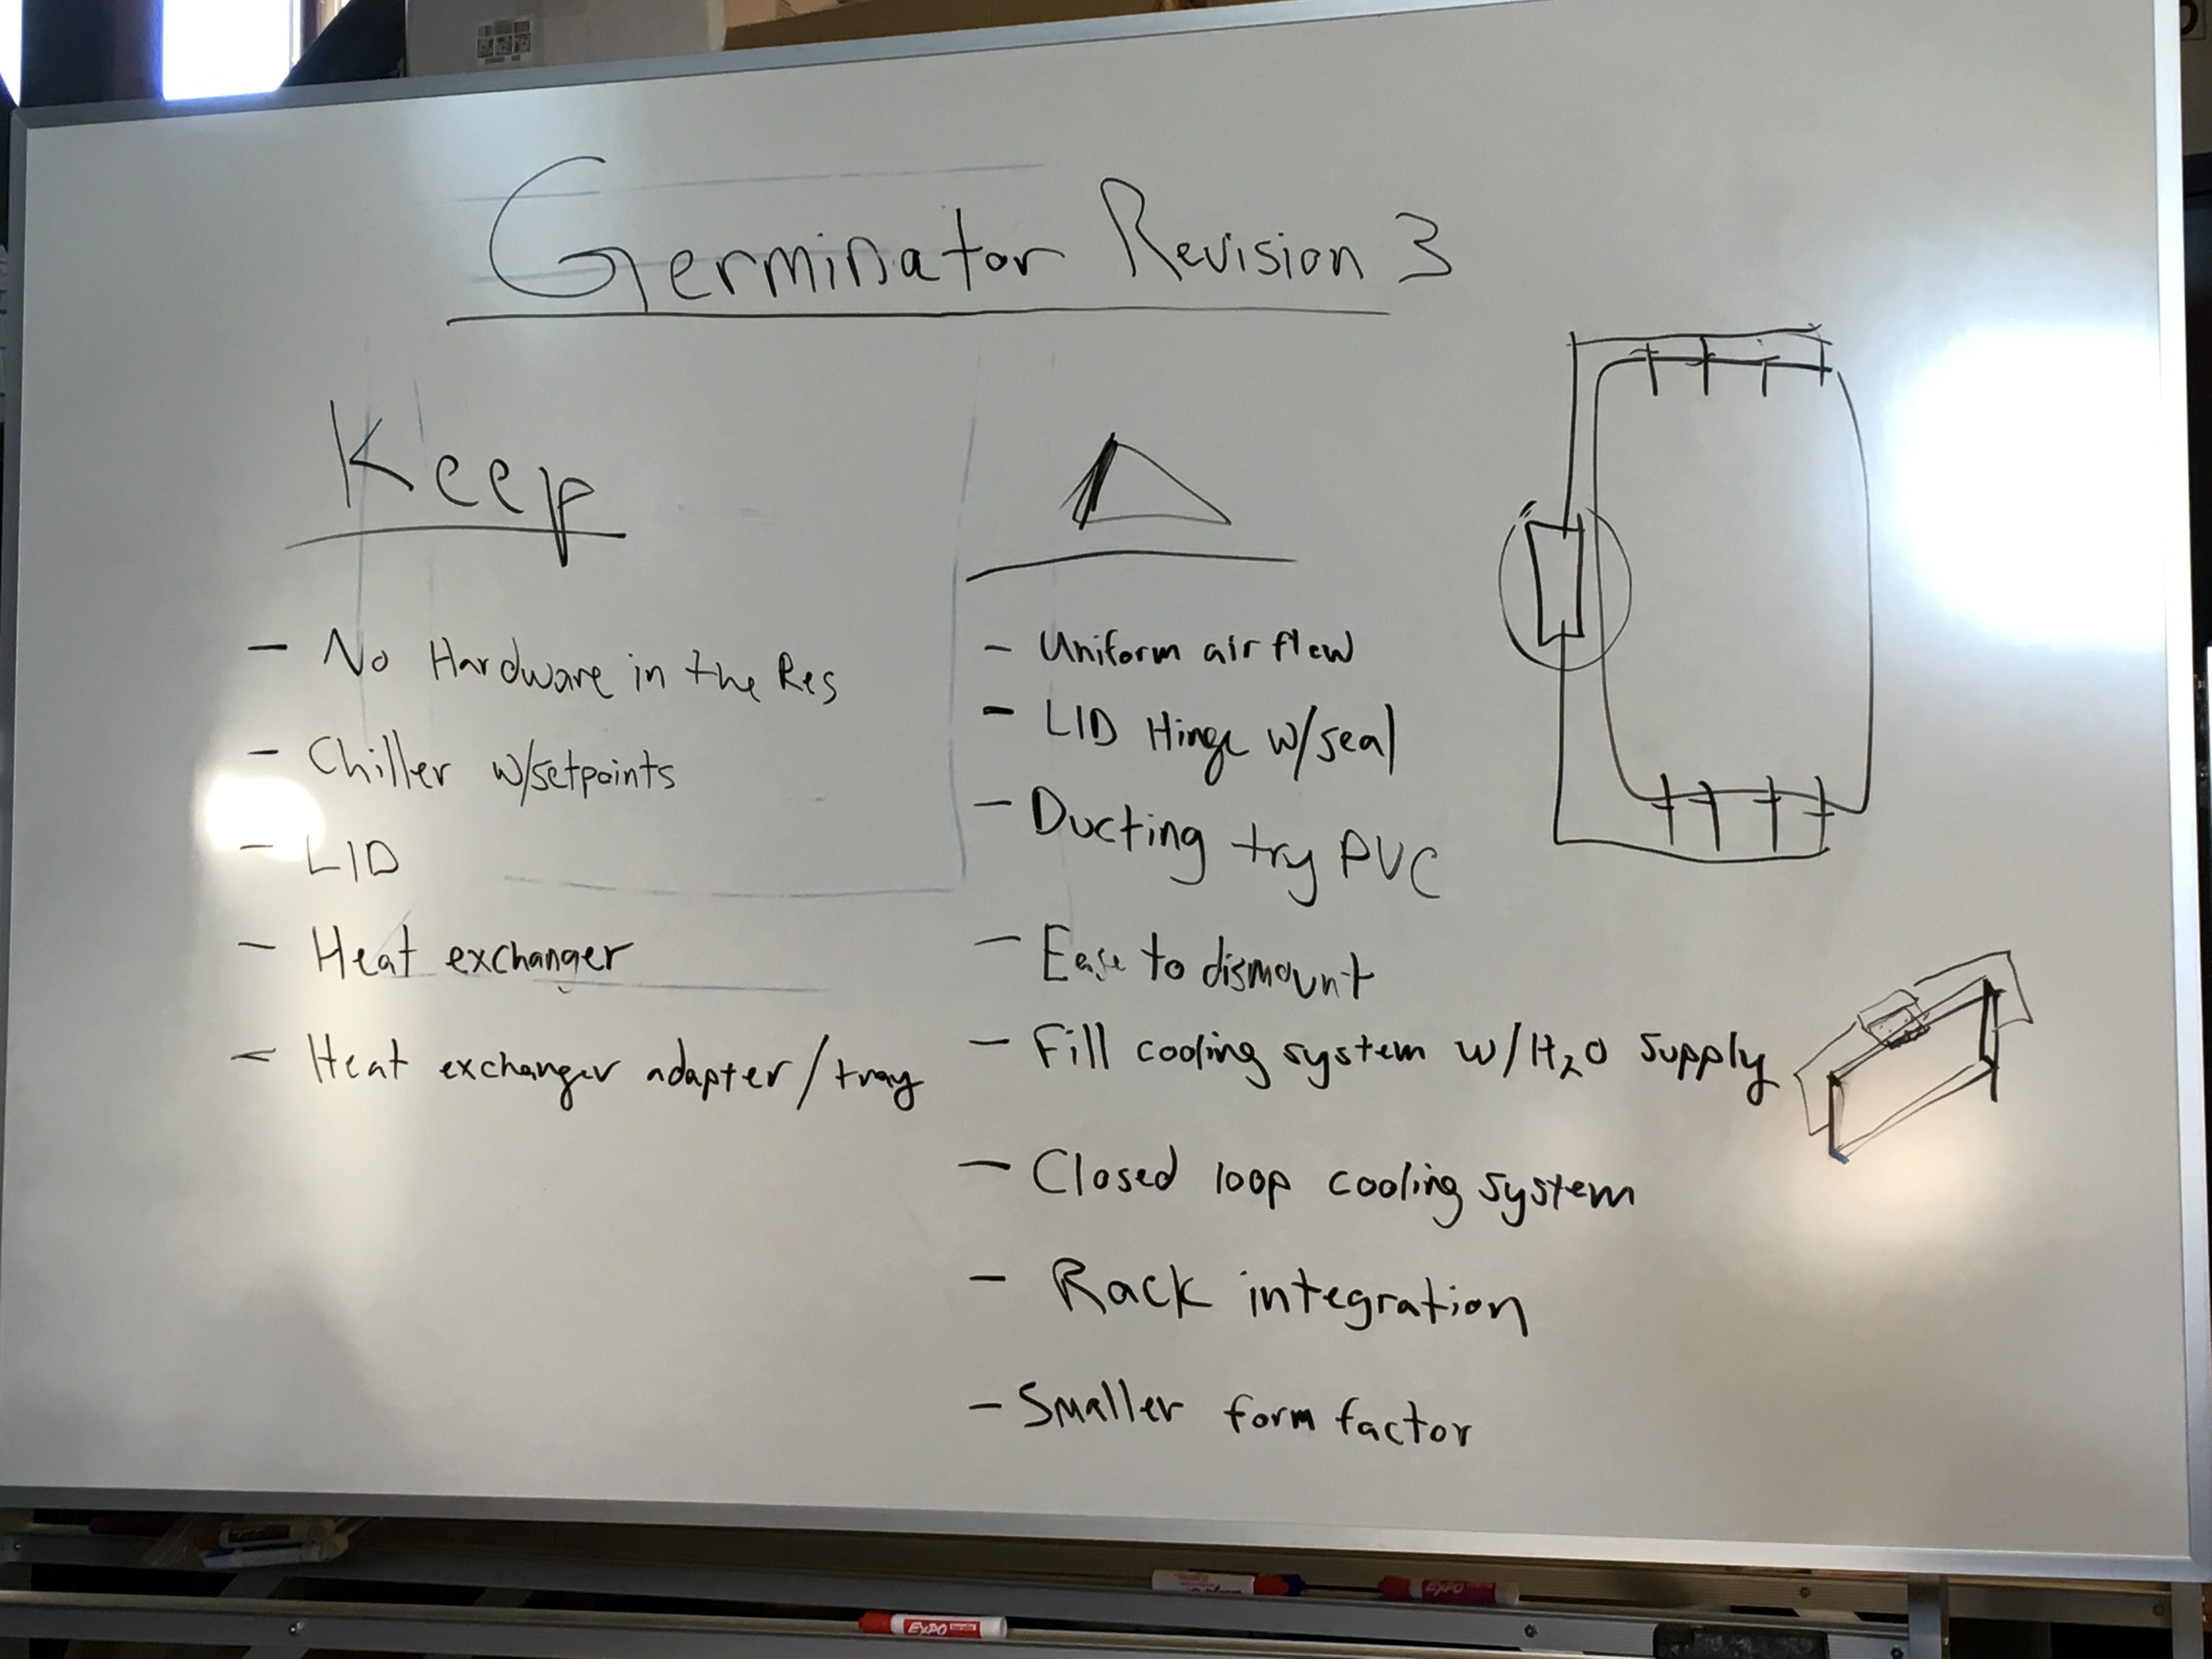 Germinator Revision 3
Keep
- No Hardware in the Res
- Chiller w/setpoints
- LID
- Heat exchanger
- Heat exchanger adapter/tray
Δ
- Uniform air flow
- LID Hinge w/seal
- Ducting try PVC
- Ease to dismount
- Fill cooling system w/H₂O supply
- Closed loop cooling system
- Rack integration
- Smaller form factor
EXPO
EXPO